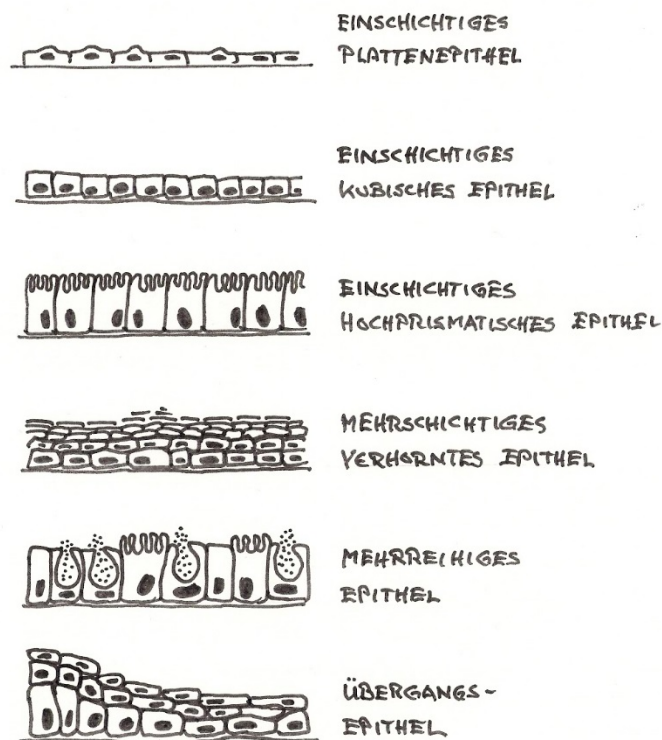 EINSCHICHTIGES
PLATTENEPITHEL
EINSCHICHTIGES
KUBISCHES EPITHEL
EINSCHICHTIGES
HOCHPRISMATISCHES EPITHEL
MEHRSCHICHTIGES
VERHORNTES EPITHEL
MEHRREIHIGES
EPITHEL
ÜBERGANGS-
EPITHEL